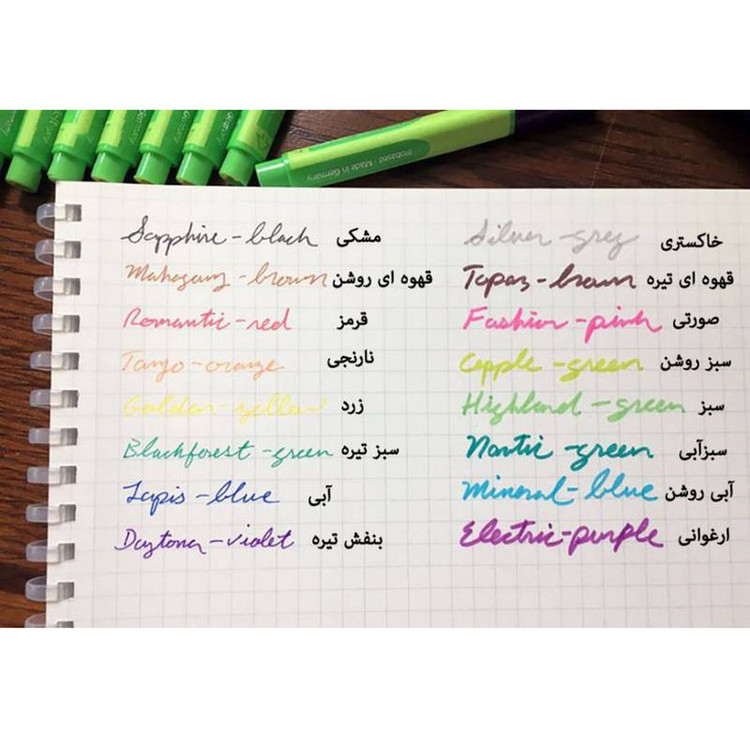 biobased | Made in Germany
Sapphire-black مشکی
Mahogany-brown قهوه ای روشن
Romantic-red قرمز
Tango-orange نارنجی
Golden-yellow زرد
Blackforest-green سبز تیره
Lapis-blue آبی
Daytona-violet بنفش تیره
Silver-grey خاکستری
Topaz-brown قهوه ای تیره
Fashion-pink صورتی
Apple-green سبز روشن
Highland-green سبز
Nautic-green سبزآبی
Mineral-blue آبی روشن
Electric-purple ارغوانی